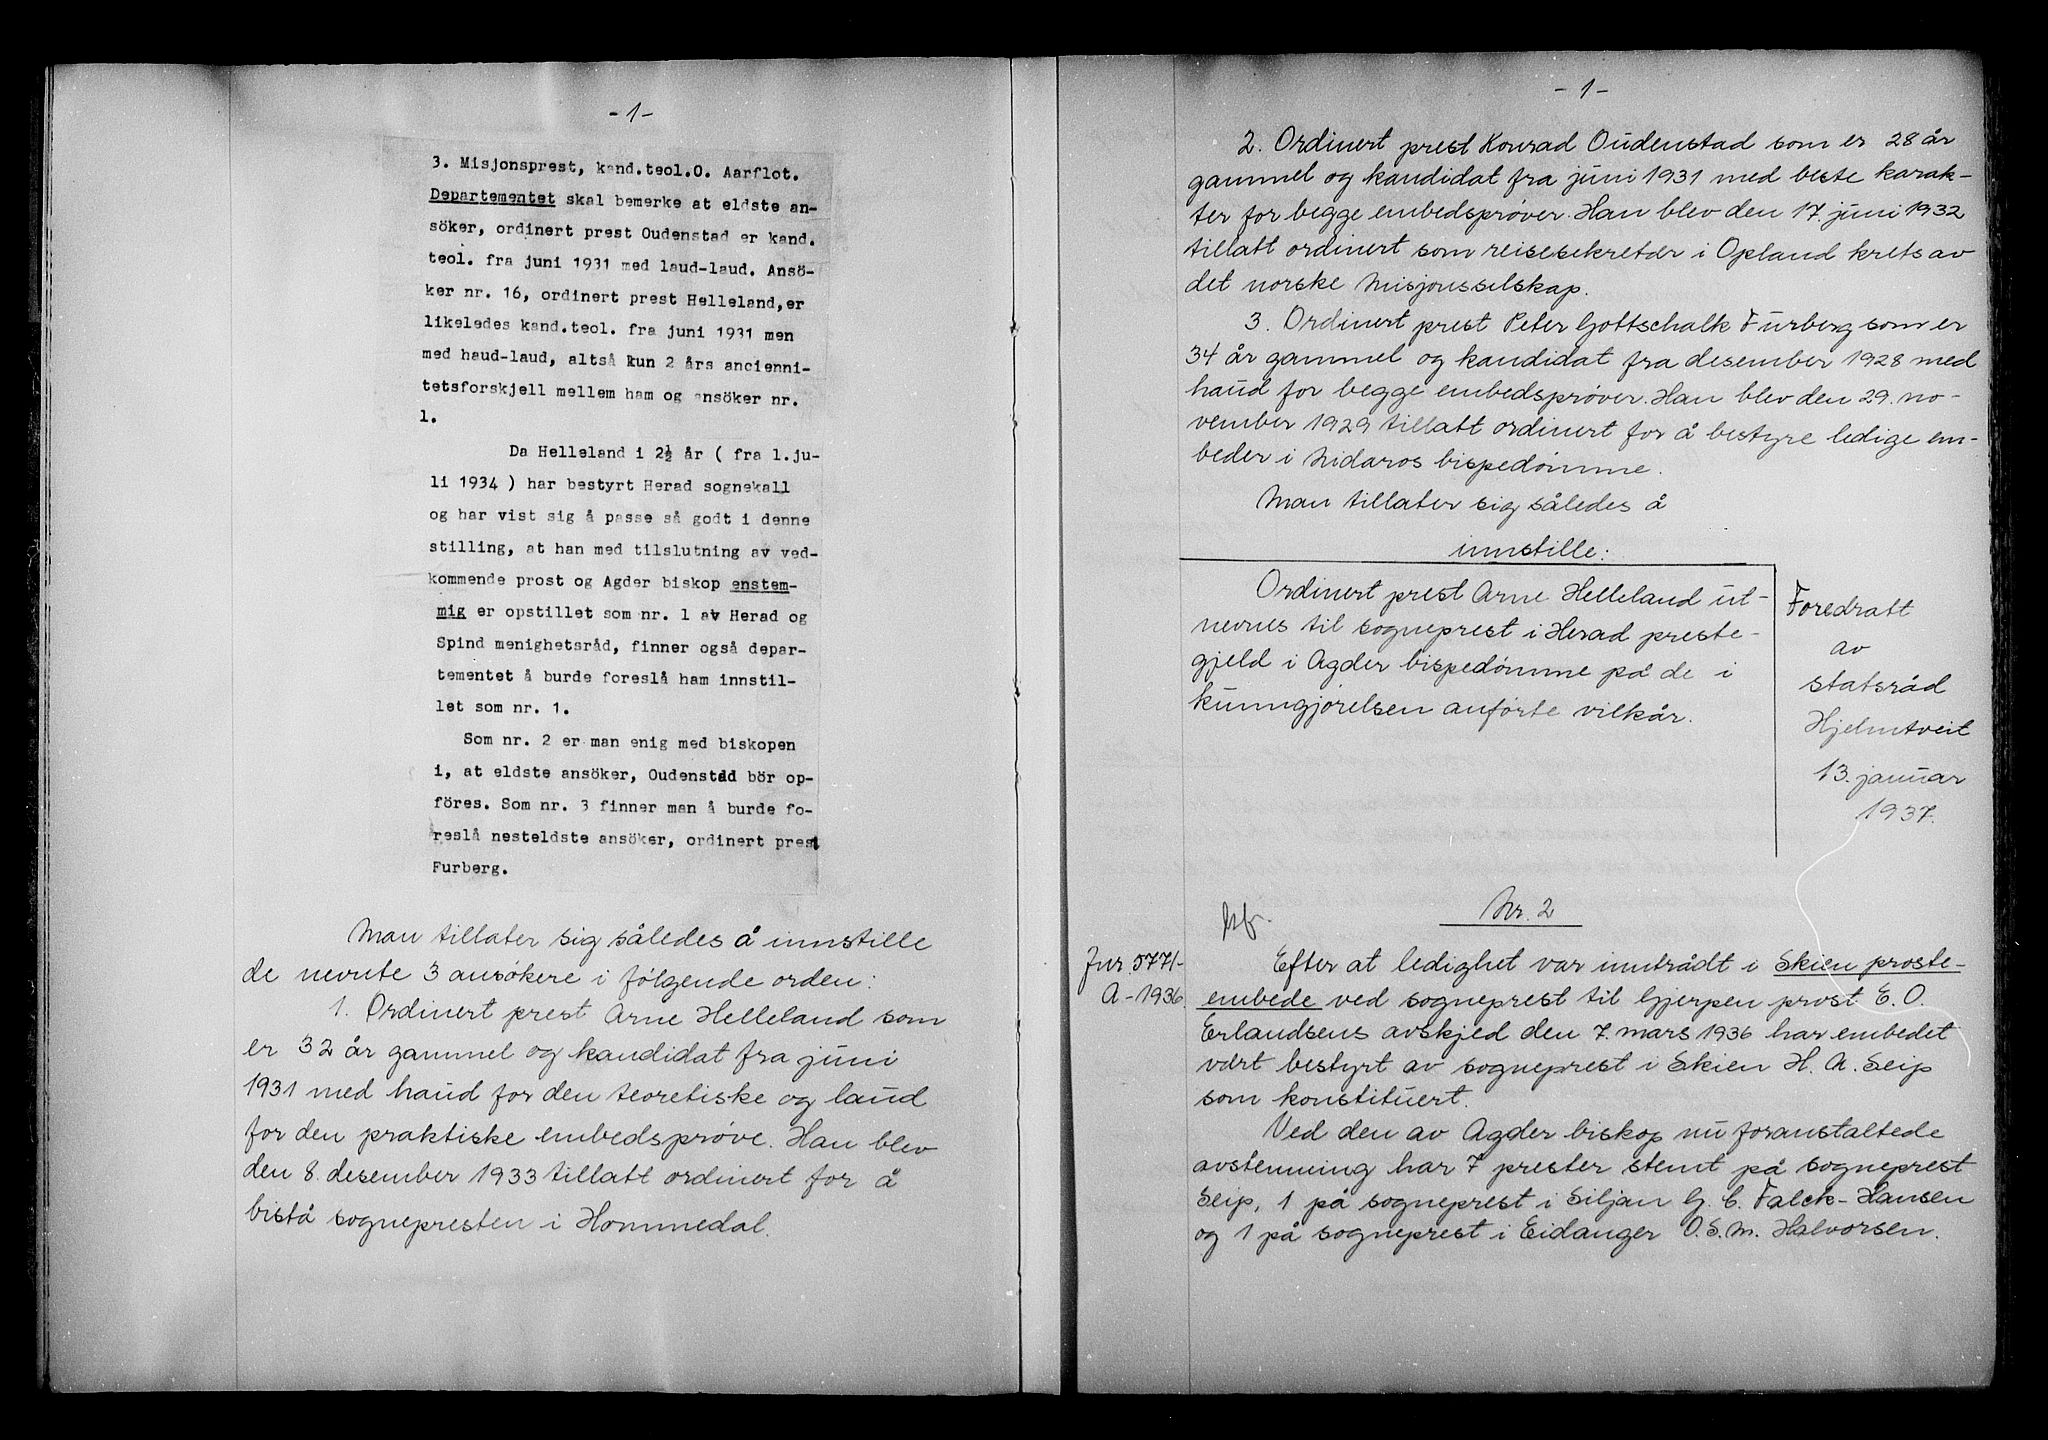 - 1 -
3. Misjonsprest, kand.teol.O. Aarflot.
Departementet skal bemerke at eldste an-
söker, ordinert prest Oudenstad er kand.
teol. fra juni 1931 med laud-laud. Ansö-
ker nr. 16, ordinert prest Helleland,er
likeledes kand.teol. fra juni 1931 men
med haud-laud, altså kun 2 års ancienni-
tetsforskjell mellem ham og ansöker nr.
1.
Da Helleland i 2½ år ( fra 1.ju-
li 1934 ) har bestyrt Herad sognekall
og har vist sig å passe så godt i denne
stilling, at han med tilslutning av ved-
kommende prost og Agder biskop enstem-
mig er opstillet som nr. 1 av Herad og
Spind menighetsråd, finner også depar-
tementet å burde foreslå ham innstil-
let som nr. 1.
Som nr. 2 er man enig med biskopen
i, at eldste ansöker, Oudenstad bör op-
föres. Som nr. 3 finner man å burde fo-
reslå nesteldste ansöker, ordinert prest
Furberg.
Man tillater sig således å innstille
de nevnte 3 ansökere i følgende orden:
1. Ordinert prest Arne Helleland som
er 32 år gammel og kandidat fra juni
1931 med haud for den teoretiske og laud
for den praktiske embedsprøve. Han blev
den 8. desember 1933 tillatt ordinert for å
bistå sognepresten i Hommedal.
- 1 -
2. Ordinert prest Konrad Oudenstad som er 28 år
gammel og kandidat fra juni 1931 med beste karak-
ter for begge embedsprøver. Han blev den 17. juni 1932
tillatt ordinert som reisesekretær i Opland krets av
det norske misjonsselskap.
3. Ordinert prest Peter Gottschalk Furberg som er
34 år gammel og kandidat fra desember 1928 med
haud for begge embedsprøver. Han blev den 29. no-
vember 1929 tillatt ordinert for å bestyre ledige em-
beder i Nidaros bispedømme.
Man tillater sig således å
innstille:
Ordinert prest Arne Helleland ut-
nevnes til sogneprest i Herad preste-
gjeld i Agder bispedømme på de i
kunngjørelsen anførte vilkår.
Foredratt
av
statsråd
Hjelmtveit
13. januar
1937.
Nr. 2
Jnr. 5771-
A - 1936
Efter at ledighet var inntrådt i Skien proste-
embede ved sogneprest til Gjerpen prost E. O.
Erlandsens avskjed den 7. mars 1936 har embedet
vært bestyrt av sogneprest i Skien H. A. Seip
som konstituert.
Ved den av Agder biskop nu foranstaltede
avstemning har 7 prester stemt på sogneprest
Seip, 1 på sogneprest i Siljan G. C. Falck-Hansen
og 1 på sogneprest i Eidanger O. S. M. Halvorsen.